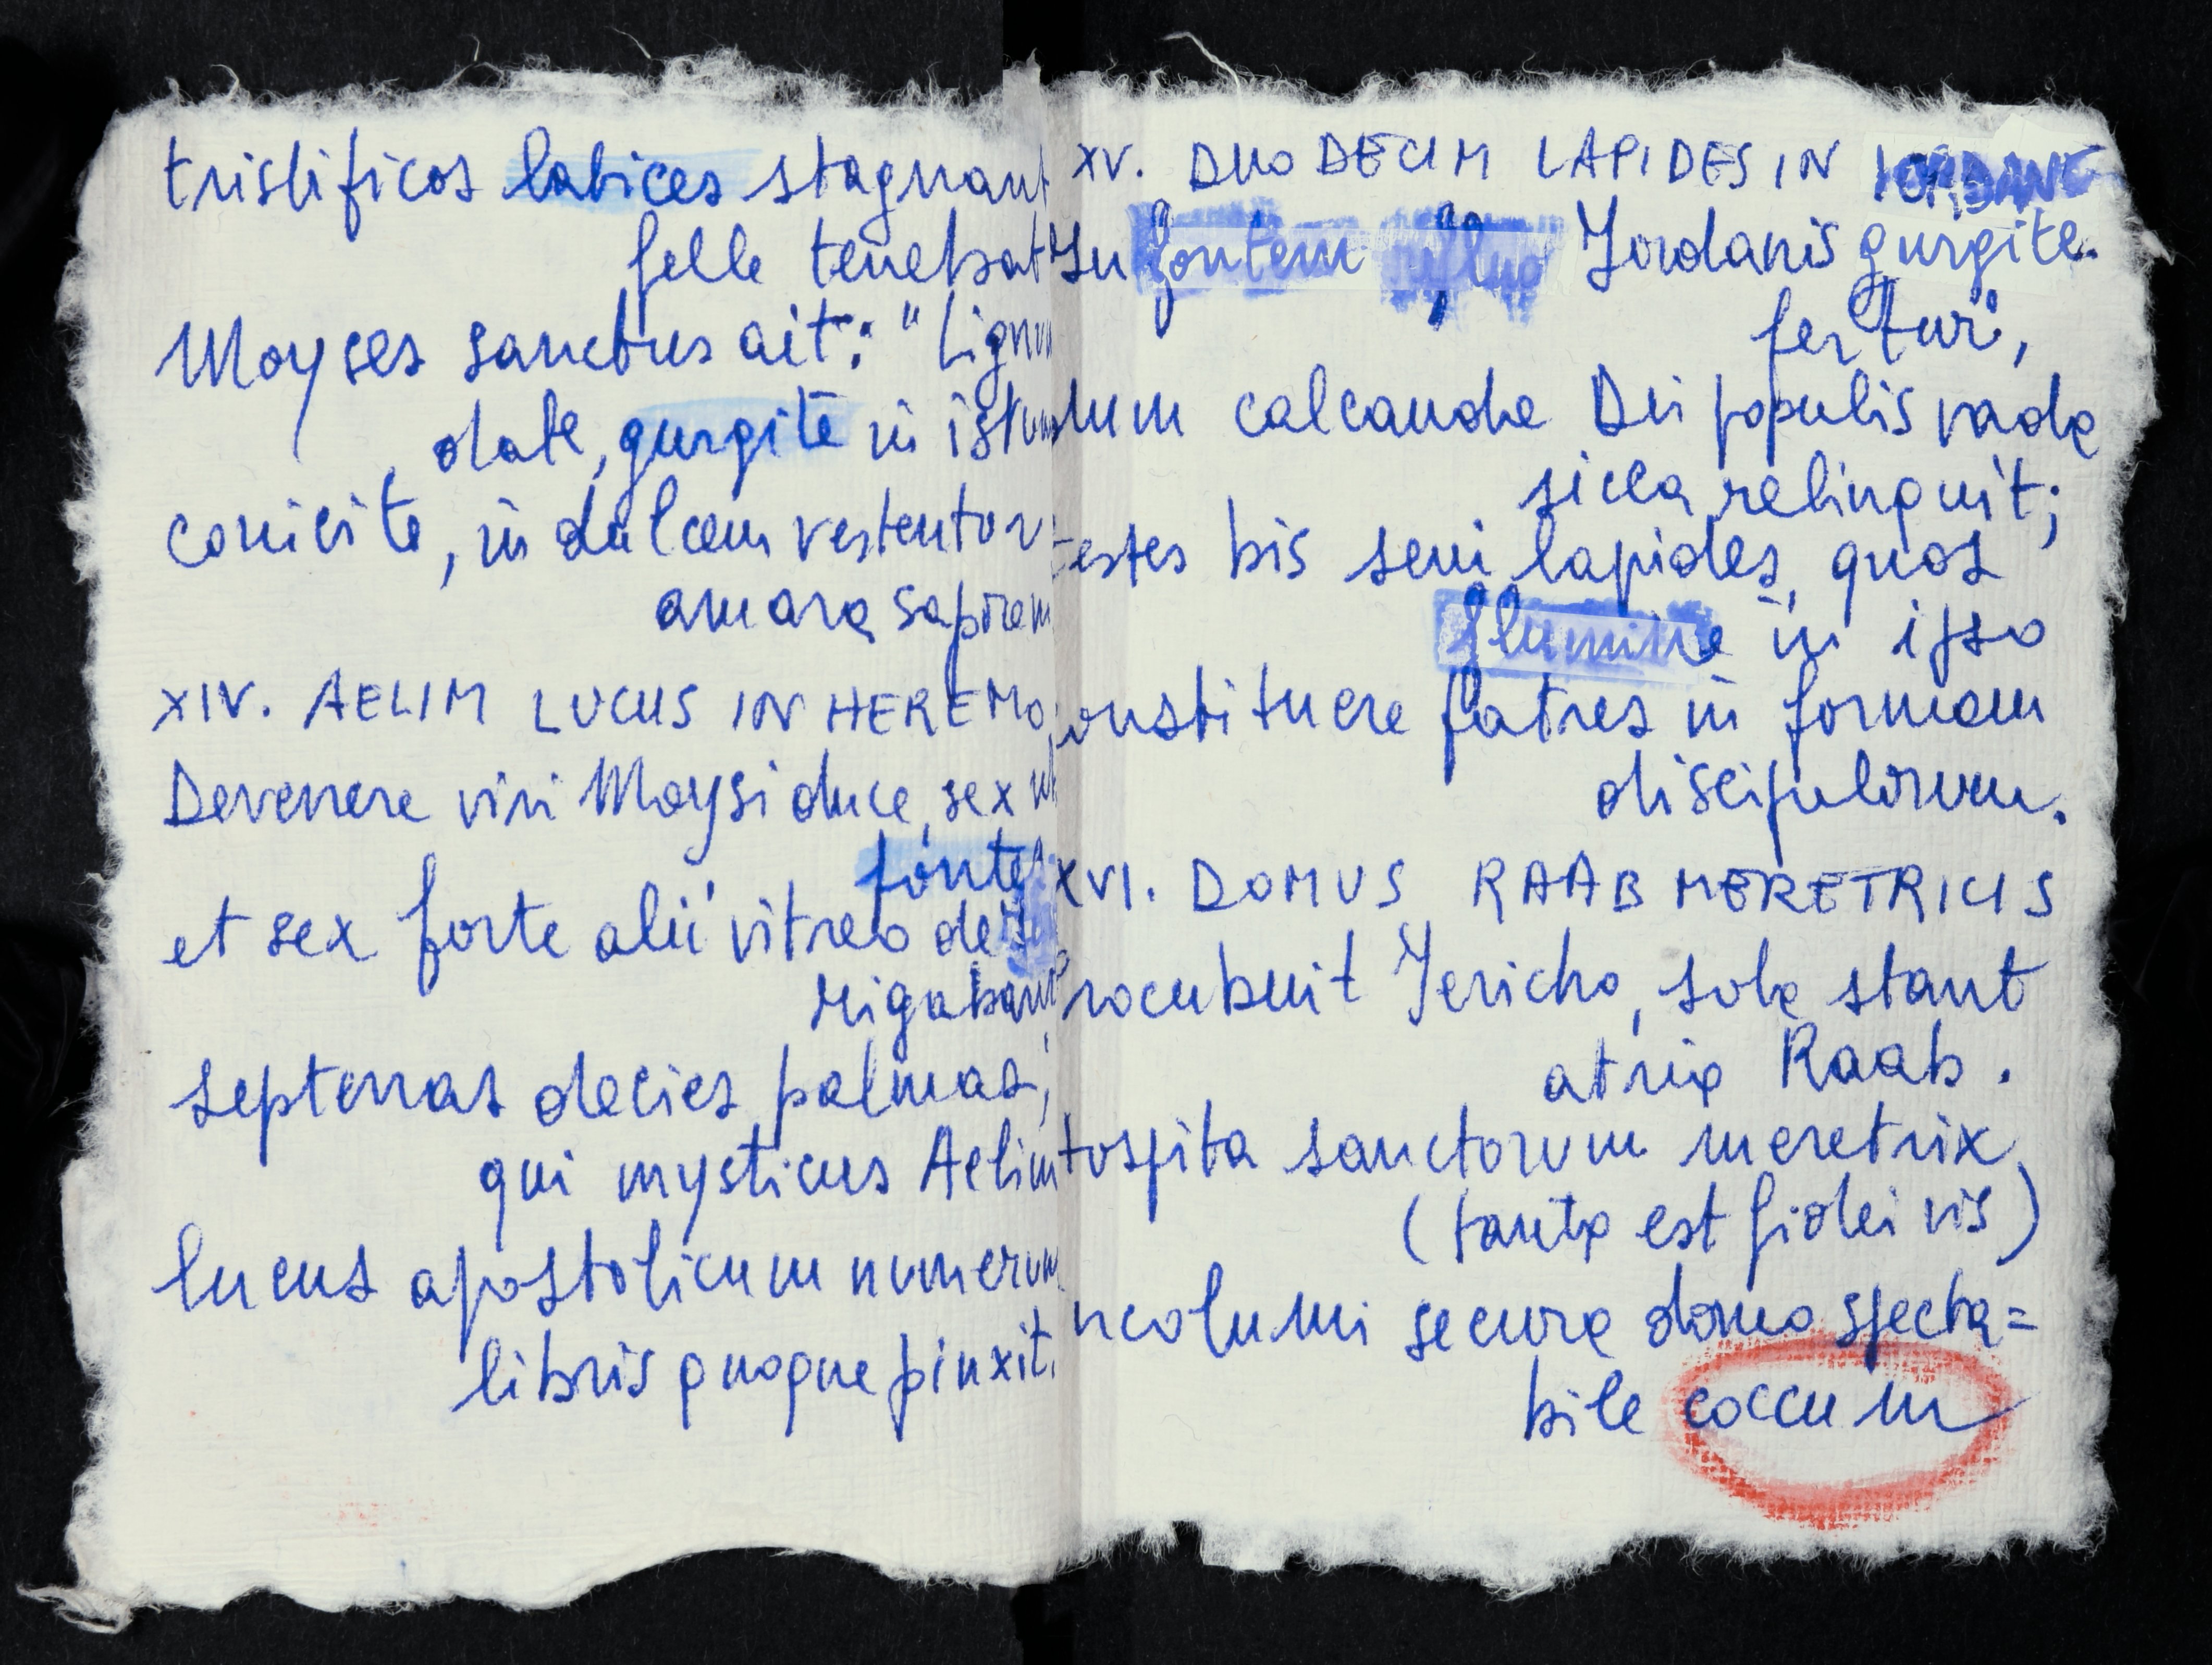 tristificos latices stagnant
felle tenebat
Moyses sanctus ait: "Lignu
date, gurgite in istu
conicite, in dulcem vestentor
amara saporem
XIV. AELIM LUCUS IN HEREMO
Devenere viri Moysi duce, sex
fonte
et sex forte alii vitreo de
rigabant
septenas decies palmas,
qui mysticus Aelim
lucus apostolicum numerum
libris quoque pinxit.
XV. DUODECIM LAPIDES IN IORDANE
In fontem refluo Jordanis gurgite
fertur,
dum calcanda Dei populis vada
sicca relinquit;
testes bis seni lapides, quos
flumine in ipso
onstituere patres in formam
discipulorum.
XVI. DOMUS RAAB MERETRICIS
Procubuit Jericho, sola stant
atria Raab.
Hospita sanctorum meretrix
(tanta est fidei vis)
ncolumi secura domo specta=
bile coccum